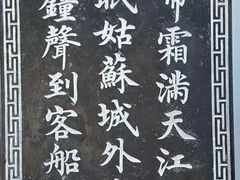 啼霜滿天江
眠姑蘇城外
鐘聲到客船